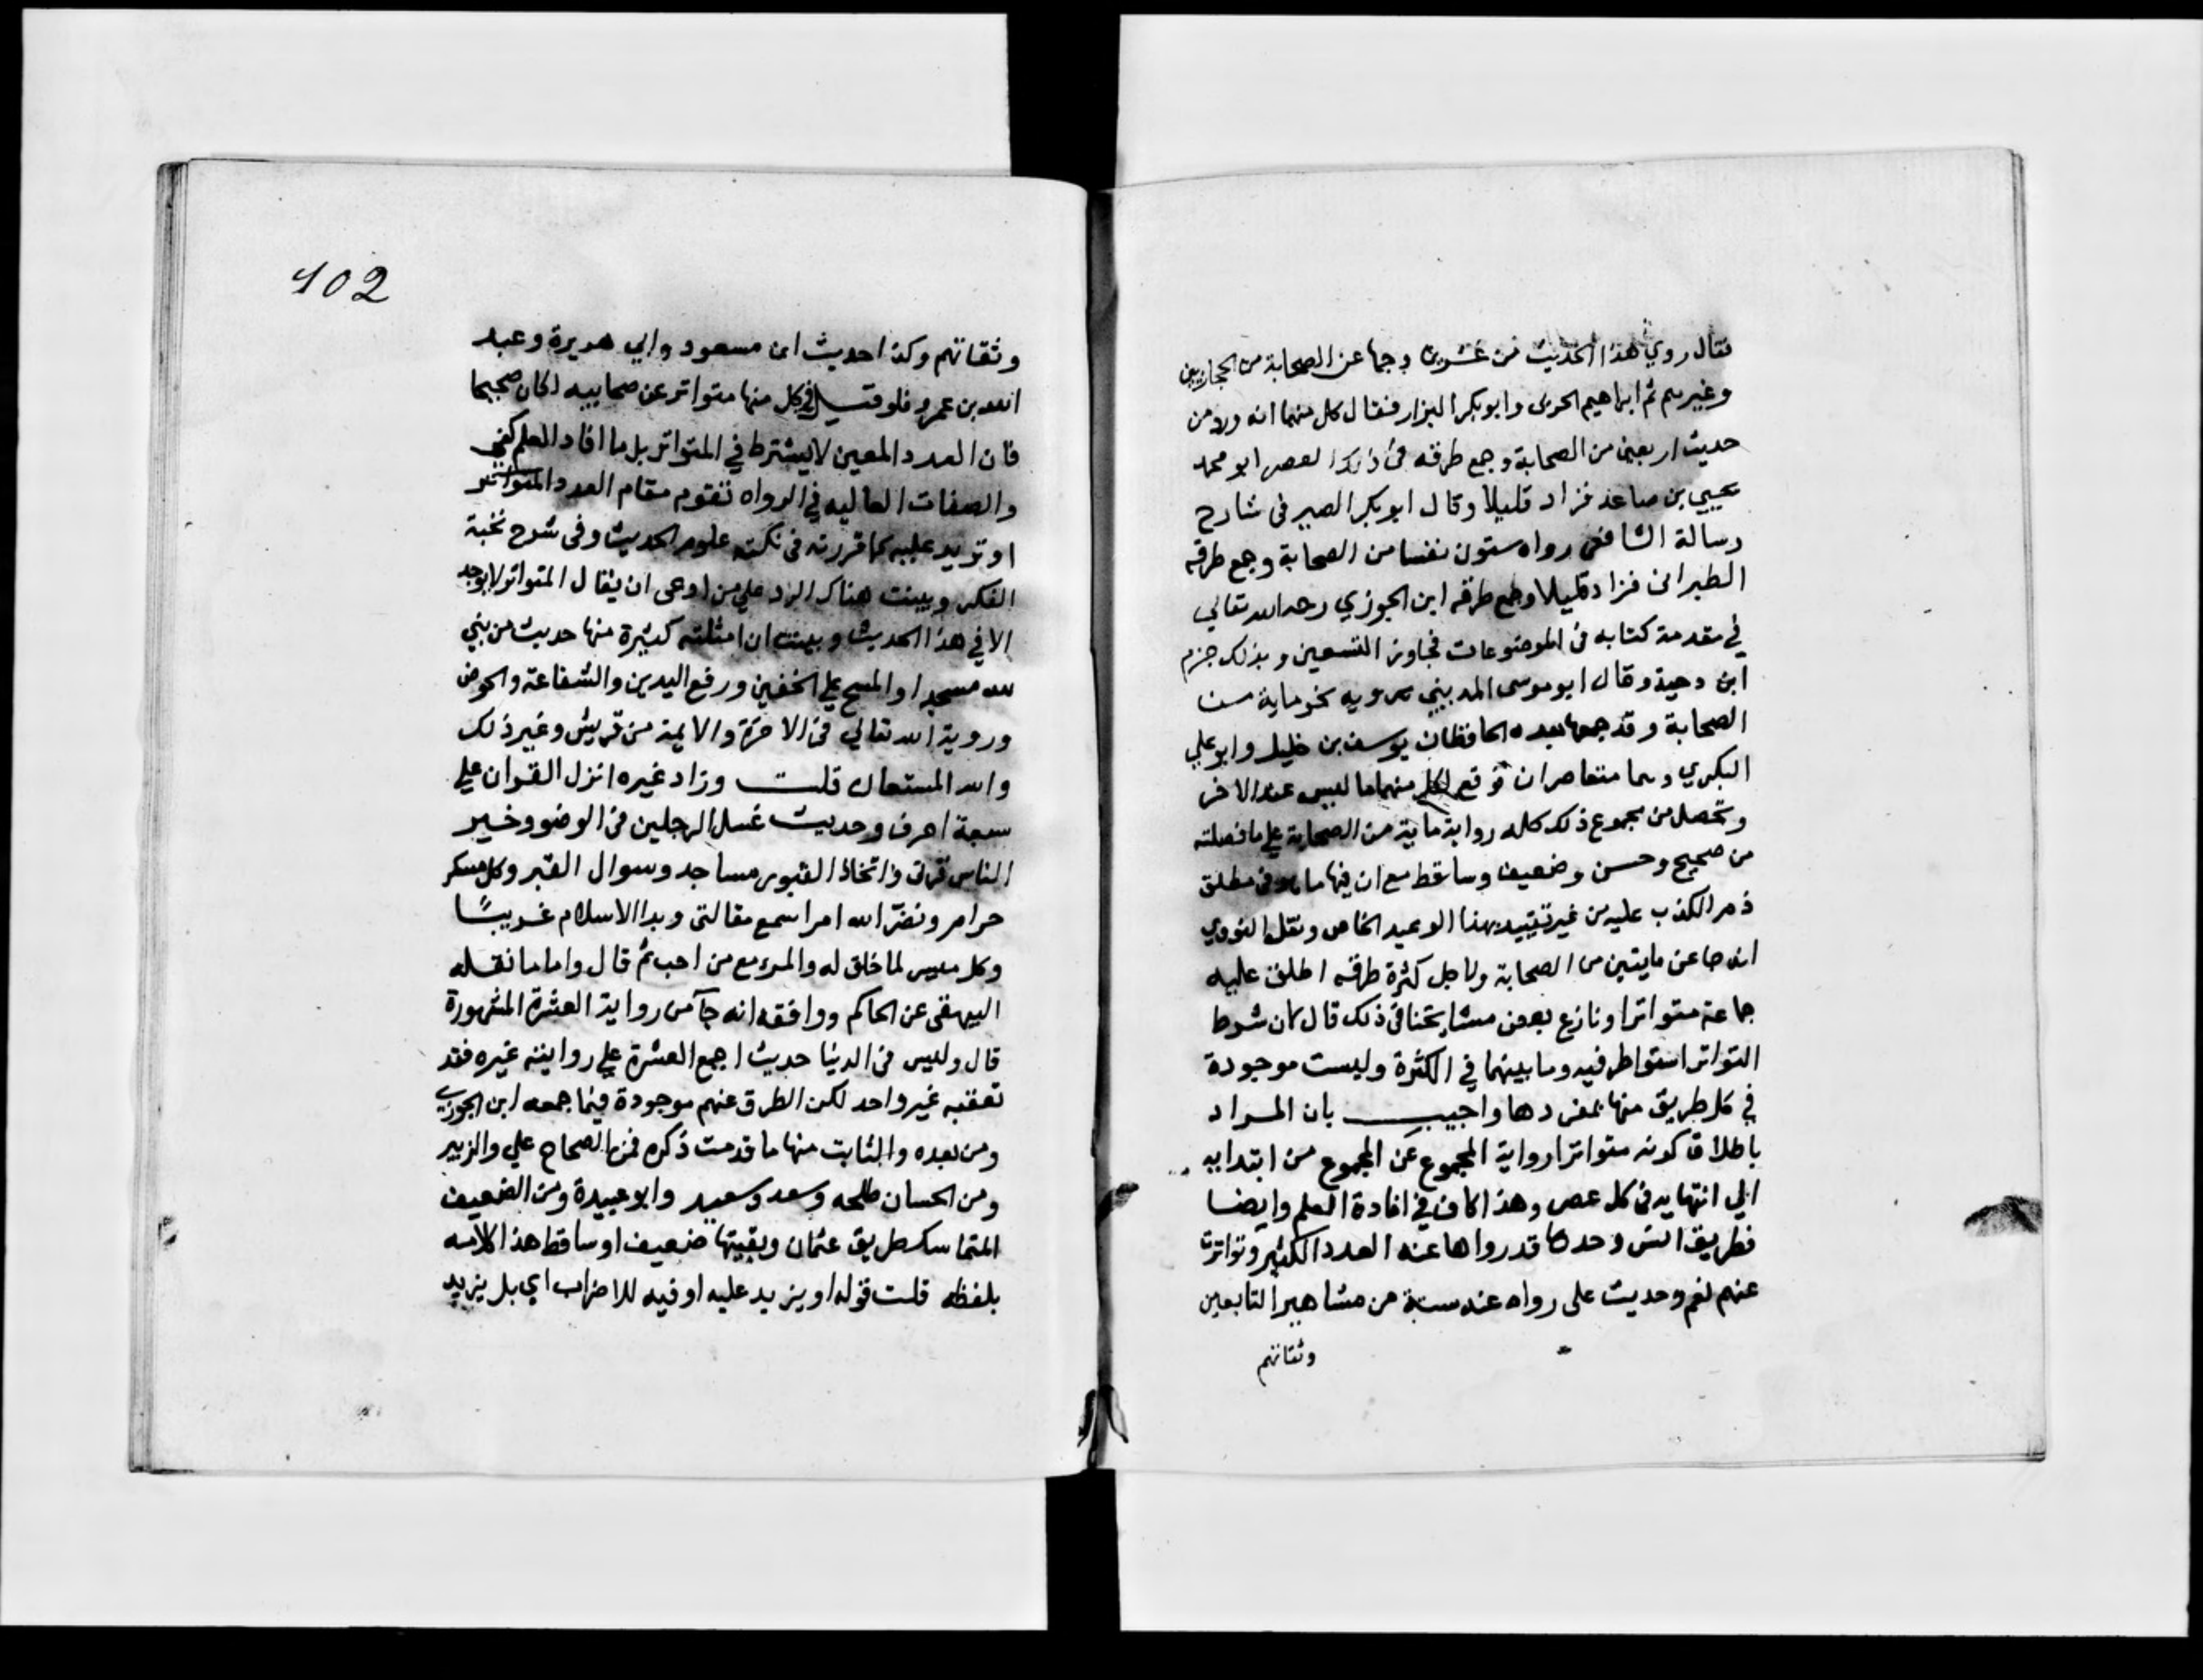 فقال روي هذا الحديث من عشرين وجها عن الصحابة من الحجازيين
وغيرهم ثم ابراهيم الحربى وابو بكر البزار فقال كل منهما انه ورد من
حديث اربعين من الصحابة وجمع طرقه فى ذلك العصر ابو محمد
يحيي بن صاعد فزاد قليلا وقال ابو بكر الصيرفى شارح
رسالة الشافعى رواه ستون نفسا من الصحابة وجمع طرقه
الطبرانى فزاد قليلا وجمع طرقه ابن الجوزي رحمه الله تعالي
في مقدمة كتابه فى الموضوعات فجاوز التسعين وبذلك جزم
ابن دحية وقال ابو موسى المدينيي يرويه نحو ماية من
الصحابة وقد جمعها بعده الحافظان يوسف بن خليل وابو علي
البكري وهما متعاصران فوقع لكل منهما ما ليس عند الاخر
وتحصل من مجموع ذلك كله رواية ماية من الصحابة علي ما فصلته
من صحيح وحسن وضعيف وساقط مع ان فيها ما هو فى مطلق
ذم الكذب عليه من غير تقييد بهذا الوعيد الخاص ونقل النووي
انه جا عن مايتين من الصحابة ولاجل كثرة طرقه اطلق عليه
جماعة متواترا ونازع بعض مشايخنا فى ذلك قال لان شرط
التواتر استوا طرفيه وما بينهما في الكثرة وليست موجودة
في كل طريق منها بمفردها واجيب بان المراد
باطلاق كونه متواترا رواية المجموع عن المجموع من ابتدايه
الي انتهايه فى كل عصر وهذا كاف في افادة العلم وايضا
فطريق انس وحدها قد رواها عنه العدد الكثير وتواترت
عنهم نعم وحديث على رواه عنه ستة من مشاهير التابعين
وثقاتهم
102
وثقاتهم وكذا حديث ابن مسعود وابي هريرة وعبد
الله بن عمرو فلو قيل في كل منها متواتر عن صحابيه لكان صحيحا
فان العدد المعين لا يشترط في المتواتر بل ما افاد العلم كفي
والصفات العاليه في الرواه تقوم مقام العدد المتواتر
او تزيد عليه كما قررته فى نكته علوم الحديث وفى شرح نخبة
الفكر وبينت هناك الرد علي من ادعى ان يقال المتواتر لا يوجد
الا في هذا الحديث وبينت ان امثلته كثيرة منها حديث من بني
لله مسجدا والمسح علي الخفين ورفع اليدين والشفاعة والحوض
وروية الله تعالي فى الاخرة والايمة من قريش وغير ذلك
والله المستعان قلت وزاد غيره انزل القران علي
سبعة احرف وحديث غسل الرجلين فى الوضو وخير
الناس قرنى واتخاذ القبور مساجد وسوال القبر وكل مسكر
حرام ونضّر الله امرا سمع مقالتى وبدا الاسلام غريبًا
وكل ميسر لما خلق له والمرء مع من احب ثم قال واما ما نقله
البيهقى عن الحاكم ووافقه انه جآ من رواية العشرة المشهورة
قال وليس فى الدنيا حديث اجمع العشرة علي روايته غيره فقد
تعقبه غير واحد لكن الطرق عنهم موجودة فيما جمعه ابن الجوزي
ومن بعده والثابت منها ما قدمت ذكره فمن الصحاح علي والزبير
ومن الحسان طلحه وسعد وسعيد وابو عبيدة ومن الضعيف
المتماسك طريق عثمان وبقيتها ضعيف او ساقط هذا كلامه
بلفظه قلت قوله او يزيد عليه او فيه للاضراب اي بل يزيد